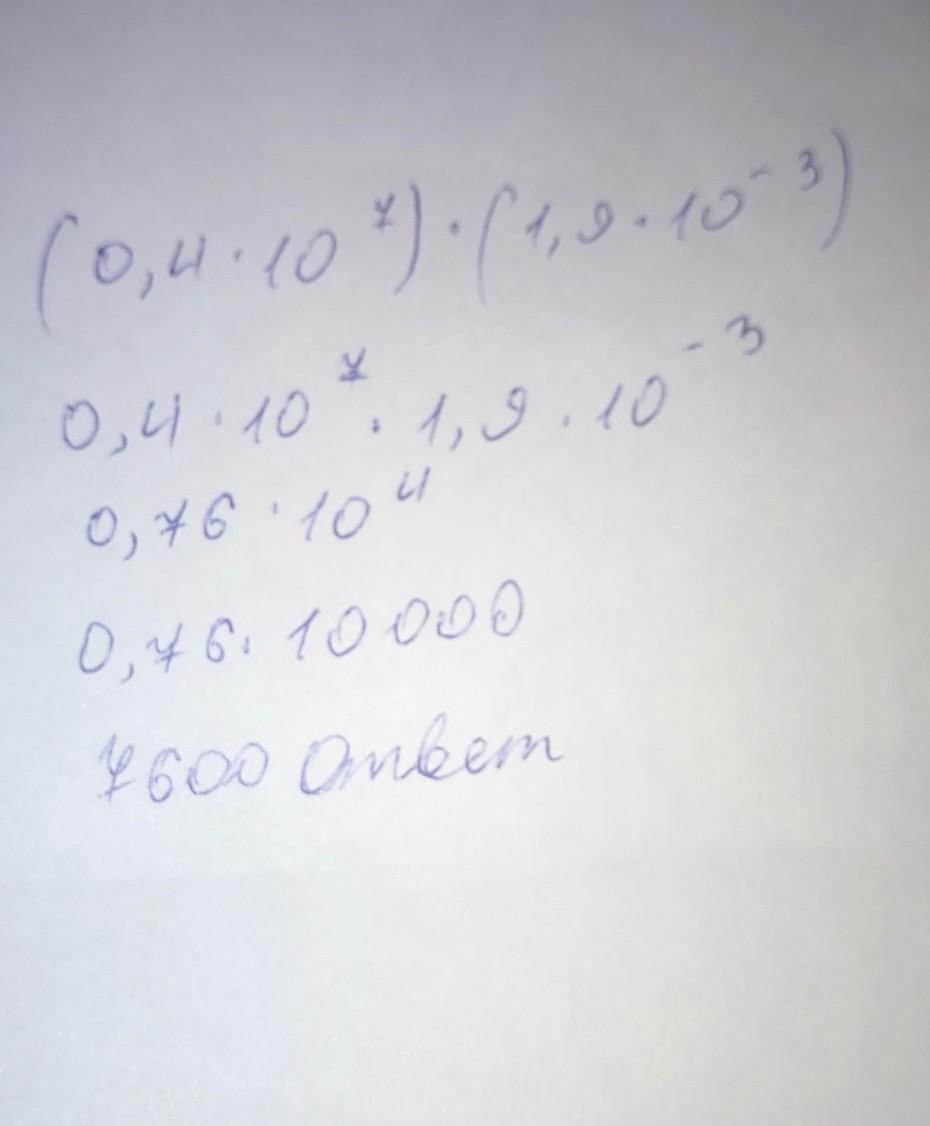 (0,4·10⁷)·(1,9·10⁻³)
0,4·10⁷·1,9·10⁻³
0,76·10⁴
0,76·10000
7600 Ответ